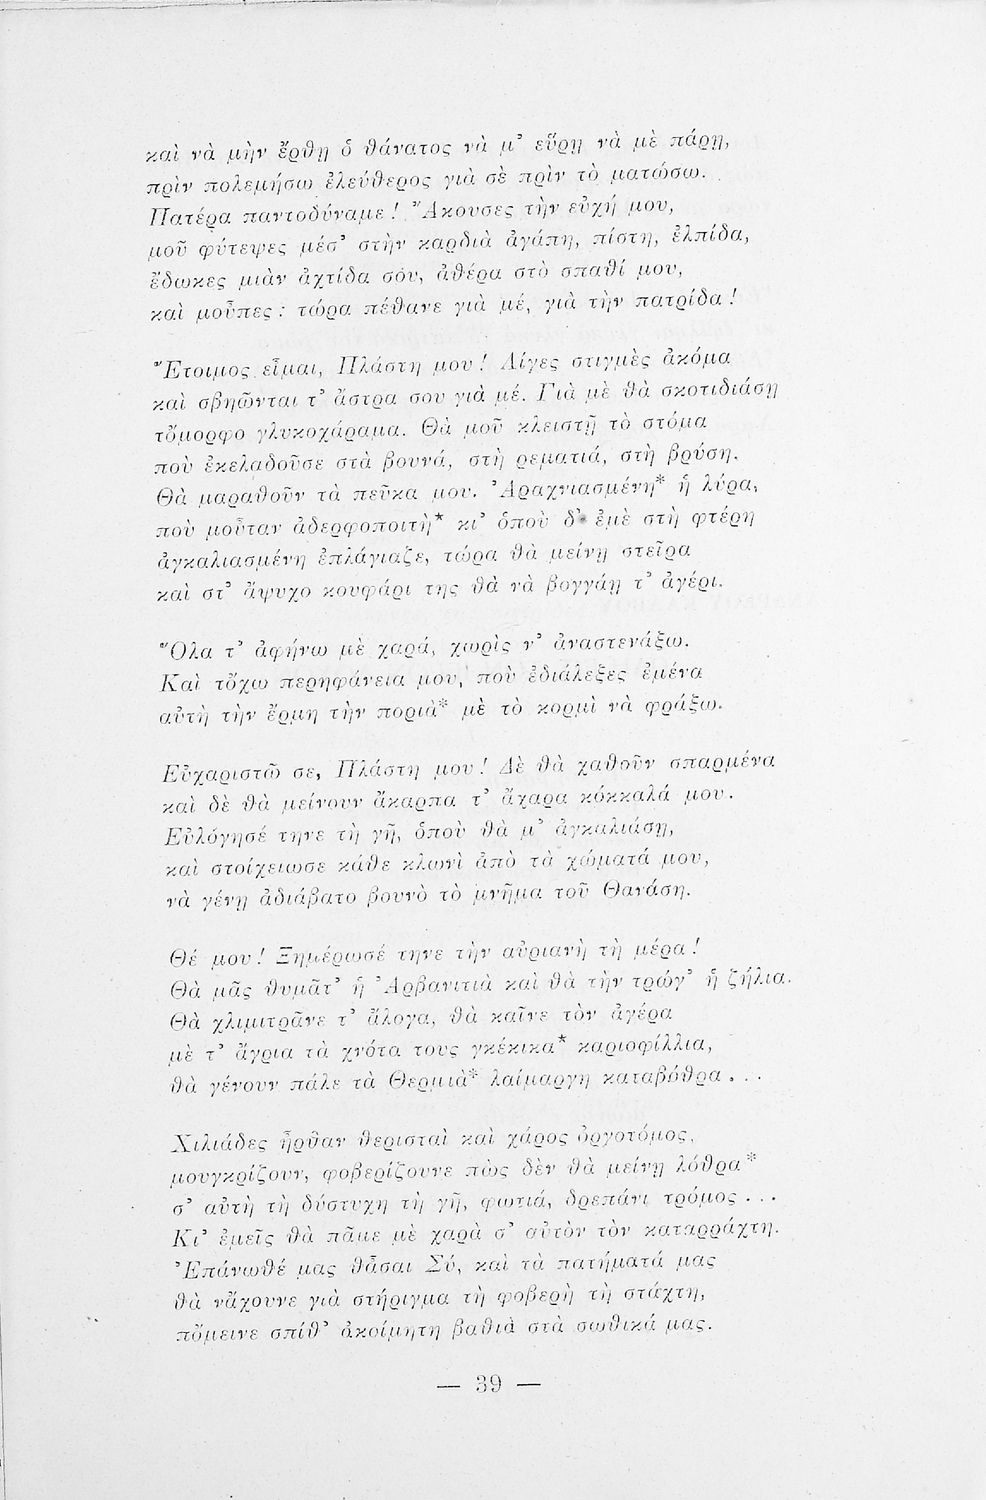 καὶ νὰ μὴν ἔρθῃ ὁ θάνατος νὰ μ᾽ εὕρῃ νὰ μὲ πάρῃ,
πρὶν πολεμήσω ἐλεύθερος γιὰ σὲ πρὶν τὸ ματώσω.
Πατέρα παντοδύναμε! Ἄκουσες τὴν εὐχή μου,
μοῦ φύτεψες μέσ᾽ στὴν καρδιὰ ἀγάπη, πίστη, ἐλπίδα,
ἔδωκες μιὰν ἀχτίδα σόυ, ἀθέρα στὸ σπαθί μου,
καὶ μοὖπες: τώρα πέθανε γιὰ μέ, γιὰ τὴν πατρίδα!

Ἕτοιμος εἶμαι, Πλάστη μου! Λίγες στιγμὲς ἀκόμα
καὶ σβηῶνται τ᾽ ἄστρα σου γιὰ μέ. Γιὰ μὲ θὰ σκοτιδιάσῃ
τὤμορφο γλυκοχάραμα. Θὰ μοῦ κλειστῇ τὸ στόμα
ποὺ ἐκελαδοῦσε στὰ βουνά, στὴ ρεματιά, στὴ βρύση.
Θὰ μαραθοῦν τὰ πεῦκα μου. Ἀραχνιασμένη* ἡ λύρα,
ποὺ μοὖταν ἀδερφοποιτὴ* κι᾽ ὁποὺ δ᾽ ἐμὲ στὴ φτέρη
ἀγκαλιασμένη ἐπλάγιαζε, τώρα θὰ μείνῃ στεῖρα
καὶ στ᾽ ἄψυχο κουφάρι της θὰ νὰ βογγάῃ τ᾽ ἀγέρι.

Ὅλα τ᾽ ἀφήνω μὲ χαρά, χωρὶς ν᾽ ἀναστενάξω.
Καὶ τὄχω περηφάνεια μου, ποὺ ἐδιάλεξες ἐμένα
αὐτὴ τὴν ἔρμη τὴν ποριὰ* μὲ τὸ κορμὶ νὰ φράξω.

Εὐχαριστῶ σε, Πλάστη μου! Δὲ θὰ χαθοῦν σπαρμένα
καὶ δὲ θὰ μείνουν ἄκαρπα τ᾽ ἄχαρα κόκκαλά μου.
Εὐλόγησέ τηνε τὴ γῆ, ὁποὺ θὰ μ᾽ ἀγκαλιάσῃ,
καὶ στοίχειωσε κάθε κλωνὶ ἀπὸ τὰ χώματά μου,
νὰ γένῃ ἀδιάβατο βουνὸ τὸ μνῆμα τοῦ Θανάση.

Θέ μου! Ξημέρωσέ τηνε τὴν αὐριανὴ τὴ μέρα!
Θὰ μᾶς θυμᾶτ᾽ ἡ Ἀρβανιτιὰ καὶ θὰ τὴν τρώγ᾽ ἡ ζήλια.
Θὰ χλιμιτρᾶνε τ᾽ ἄλογα, θὰ καῖνε τὸν ἀγέρα
μὲ τ᾽ ἄγρια τὰ χνότα τους γκέκικα* καριοφίλλια,
θὰ γένουν πάλε τὰ Θερμιὰ* λαίμαργη καταβόθρα...

Χιλιάδες ἦρθαν θερισταὶ καὶ χάρος ὀργοτόμος,
μουγκρίζουν, φοβερίζουνε πὼς δὲν θὰ μείνῃ λόθρα*
σ᾽ αὐτὴ τὴ δύστυχη τὴ γῆ, φωτιά, δρεπάνι τρόμος...
Κι᾽ ἐμεῖς θὰ πᾶμε μὲ χαρὰ σ᾽ αὐτὸν τὸν καταρράχτη.
Ἐπάνωθέ μας θἆσαι Σύ, καὶ τὰ πατήματά μας
θὰ νἄχουνε γιὰ στήριγμα τὴ φοβερὴ τὴ στάχτη,
πὤμεινε σπίθ᾽ ἀκοίμητη βαθιὰ στὰ σωθικά μας.

— 39 —